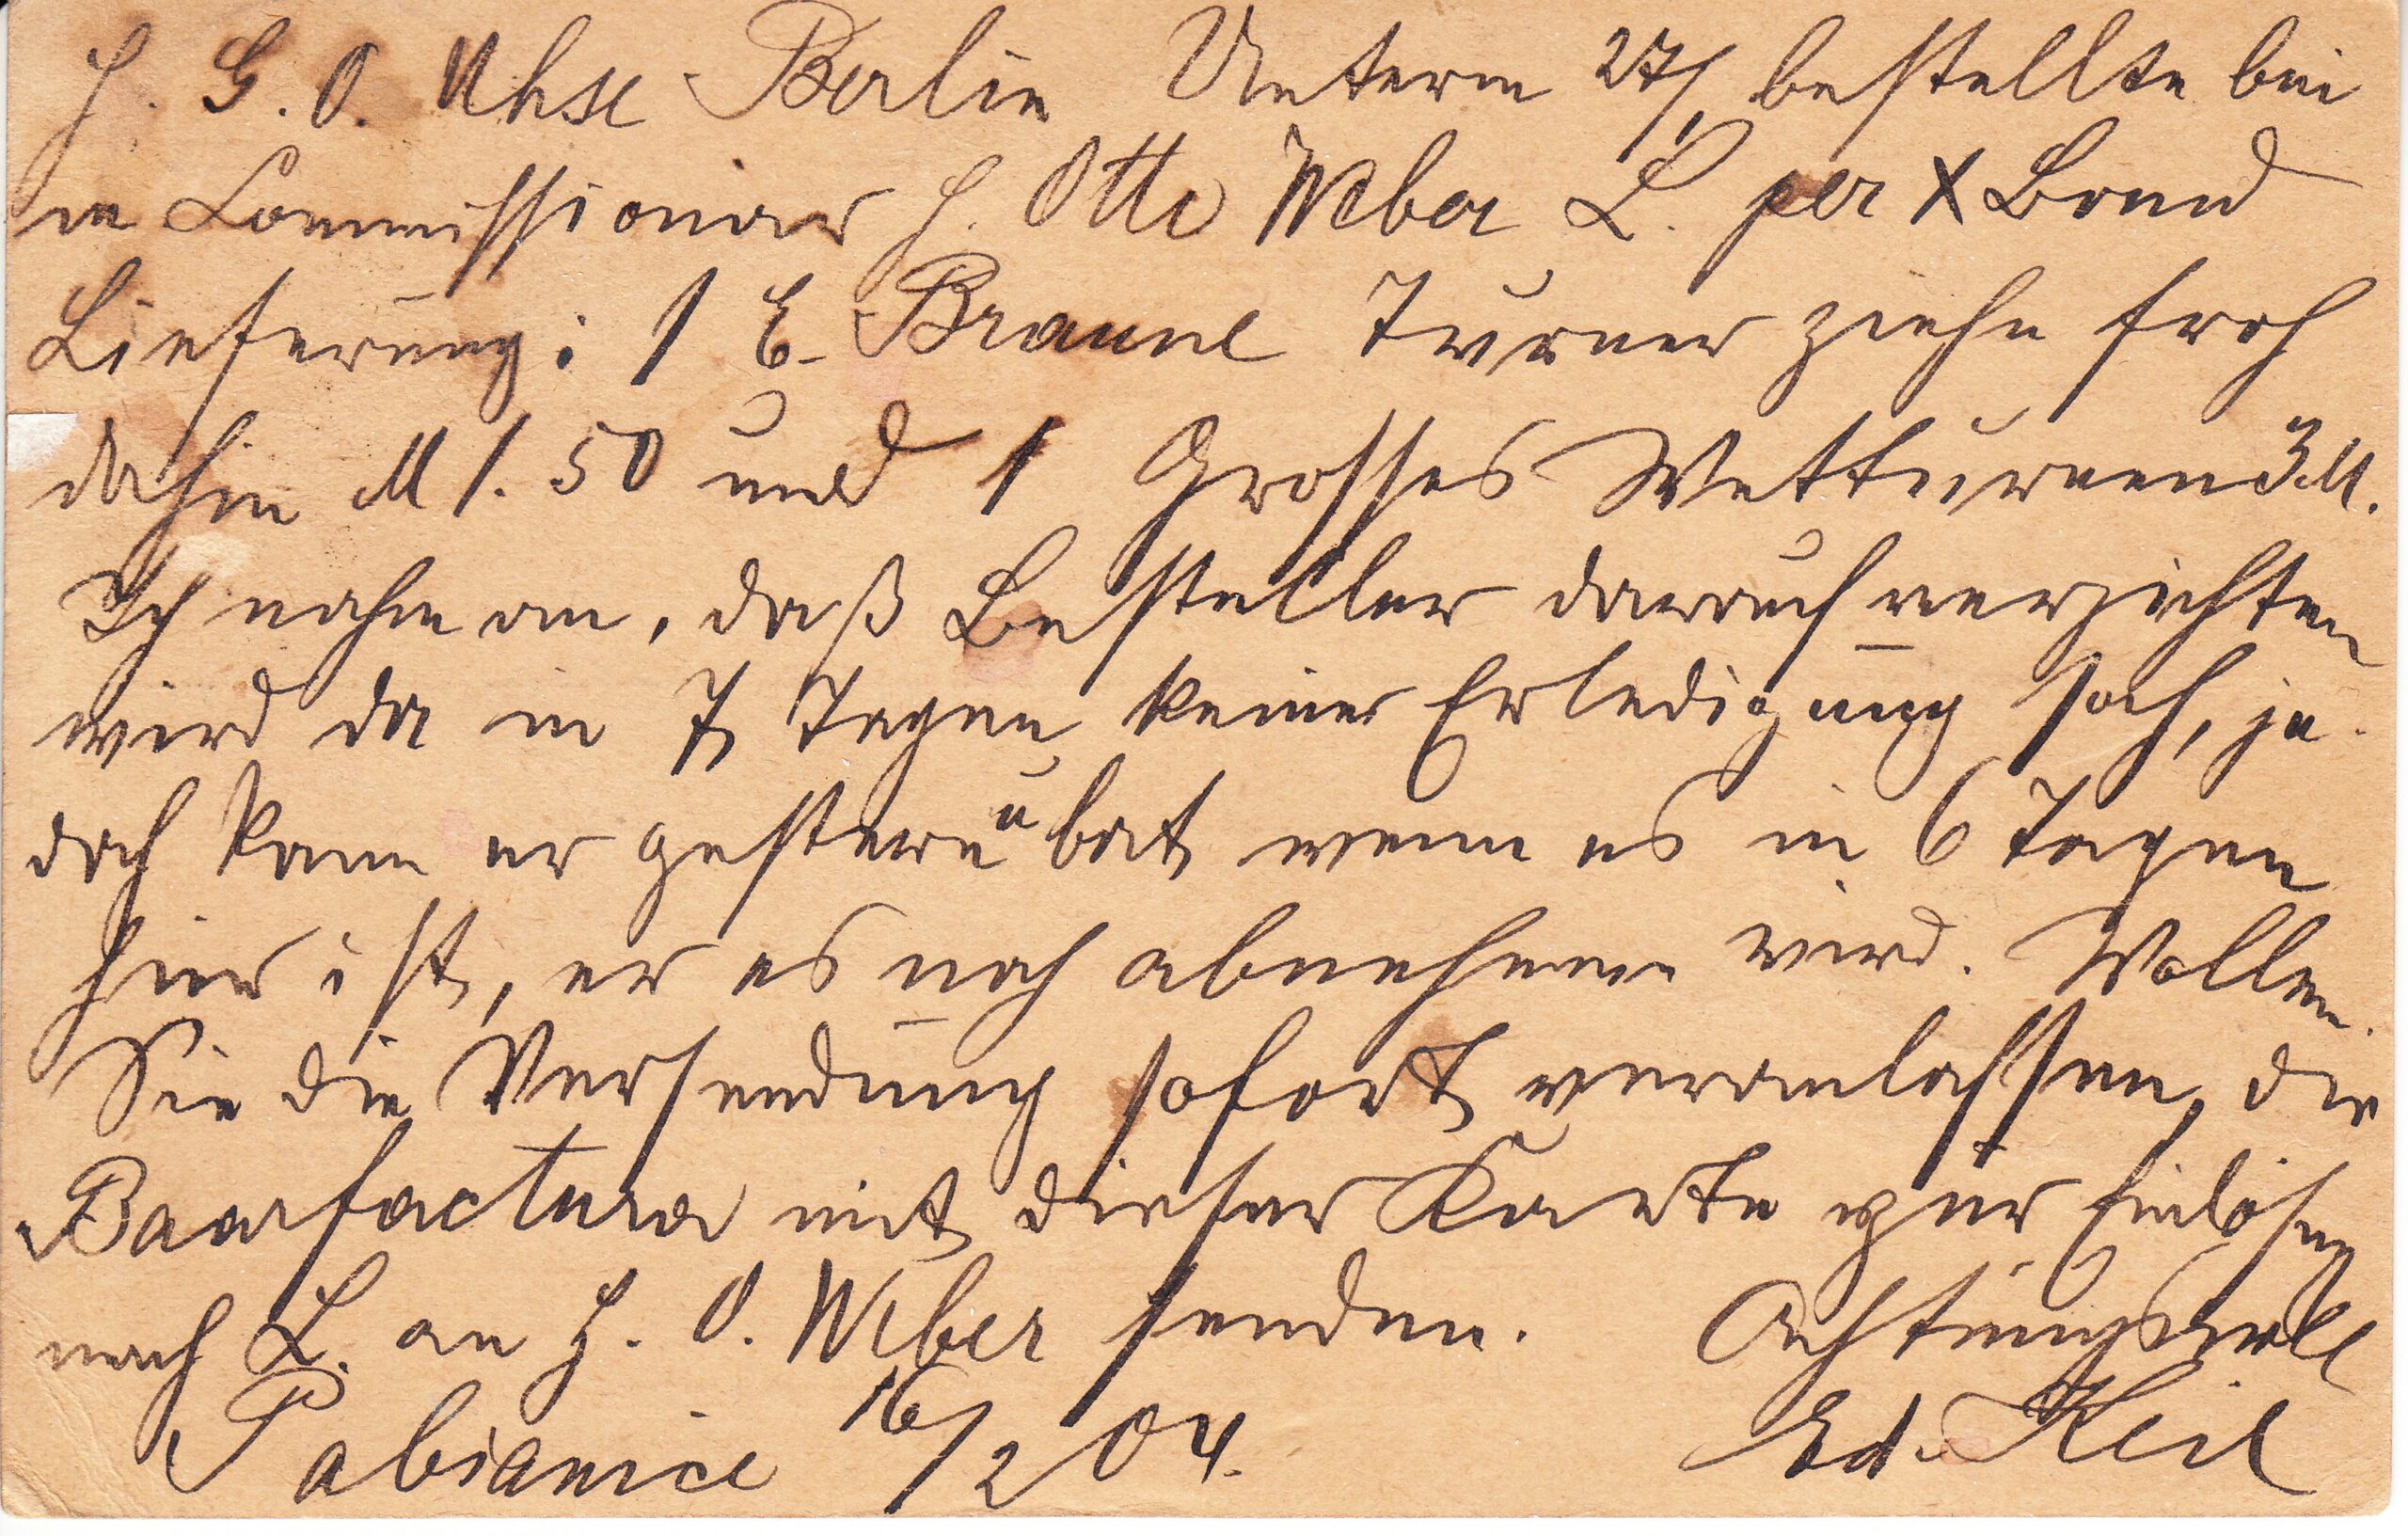 H. G. O. Uhse Berlin Unterm 27/1 bestellte bei
m Commissionar H. Otto Weber L. per X Band
Lieferung: 1 E. Braune Turner ziehn froh
dahin M 1.50 und 1 Grosses Wetturnen 3 M.
Ich nahm an, daß Besteller darauf verzichten
wird da in 7 Tagen keine Erledigung sah, je-
doch kam er gestern u bat wenn es in 6 Tagen
hier ist, er es noch abnehmen wird. Wollen
Sie die Versendung sofort veranlassen, die
Baarfactura mit dieser Karte zur Einlösung
nach L. an H. O. Weber senden. Achtungsvoll
Pabianice 16/2 04. Ed. Keil